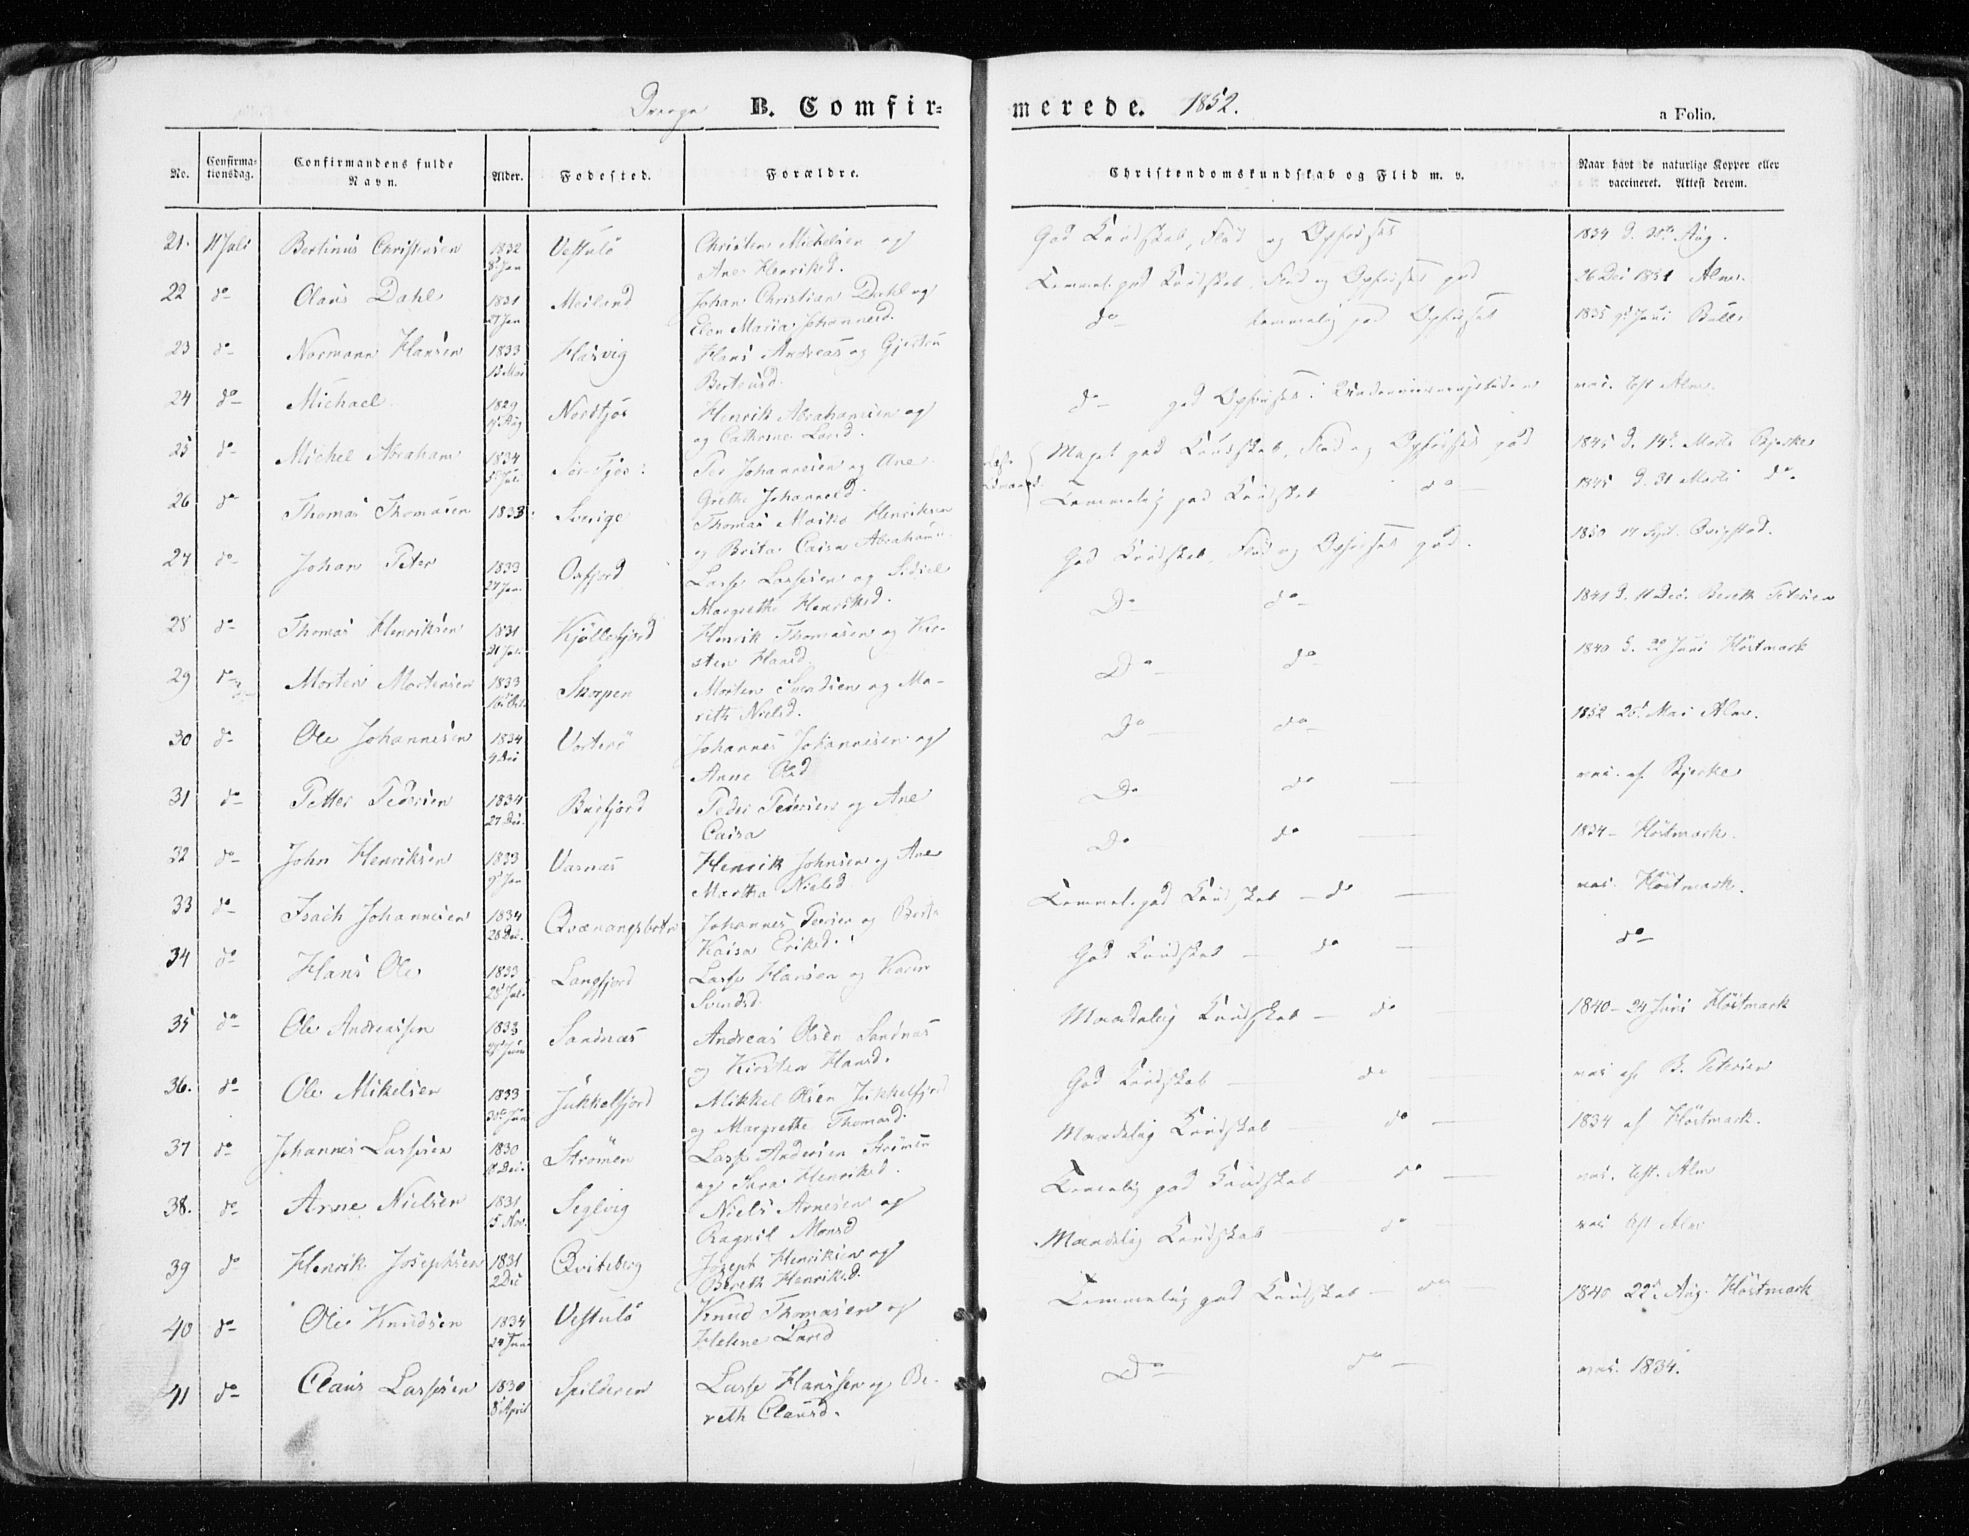 Drenge B. Comfir=
merede. 1852.
a Folio.
No.
Confirma=
tionsdag.
Confirmandens fulde
Navn.
Alder.
Fodested.
Forældre.
Christendomskundskab og Flid m. v.
Naar havt de naturlige Kopper eller
vaccineret. Attest derom.
21. 11 Juli Bertinus Christensen 1832 Vestulö Christen Michelsen og
8 Jan Ane Henriksd.
God Kundskab, Flid og Opførsel 1834 d. Aug.
22 do Olaus Dahl 1831 Meiland Johan Christian Dahl og
27 Jan Elen Maria Johannesd.
Temmel. god Kundskab, Flid og Opførsel god 26 Dec 1851 Alm.
23 do Normann Hansen 1833 Hasvig Hans Andreas og Gjertru
Berteusd.
do temmelig god Opførsel 1835 9 Juni Bull
24 do Michael 1829 Nordtjos Henrik Abrahamsen og
Aug og Cathrine Larsd.
do god Opførsel i Underviisningstiden vac. Test Alm.
25 do Michel Abraham 1834 Per Johannesen og Ane
5 Juli Grethe Johannesd.
Meget god Kundskab, Flid og Opførsel god 1845 d. 14 Marts Bjerke
26 do Thomas Thomasen 1833 Sverige Thomas Henriksen
og Brita Caisa Abrahamd.
Temmelig god Kundskab do 1845 d. 31 Marts do
27 do Johan Peter 1833 Oxfjord Lasse Lassesen og Sidsel
27 Jan Margrethe Henriksd.
God Kundskab, Flid og Opførsel god. 1850 17 Sept. Qvigstad.
28 do Thomas Henriksen 1831 Kjöllefjord Henrik Thomasen og Kir-
sten Hansd.
Do do 1841 d. 11 Dec. Bereth Petersen
29 do Morten Mortensen 1833 Skorpen Morten Svendsen og Ma-
rith Nielsd.
Do do 1840 d. 22 Juni Höstmark
30 do Ole Johannesen 1834 Vorterö Johannes Johannesen og
4 Dec Anne Olsd
Do do 1852 25 Mai Alm.
31 do Petter Pedersen 1834 Burfjord Peder Pedersen og Ane
27 Dec. Caisa
Do do vac. af Bjerke
32 do John Henriksen 1833 Varnæs Henrik Johnsen og Ane
9 Jan Martha Nielsd.
Do do 1834 Höstmark.
33 do Isach Johannesen 1834 Qvænangsbotn Johannes Persen og Berit
28 Dec. Kaisa Eriksd.
Temmel. god Kundskab do vac. Höstmark.
34 do Hans Ole 1833 Langfjord Lasse Hansen og Karen
28 Juli Svendsd.
God Kundskab do do
35 do Ole Andreassen 1833 Sandnæs Andreas Olsen Sandnæs
Juni og Kirsten Hansd.
Maadelig Kundskab do 1840 24 Juni Höstmark
36. do Ole Mikelsen 1833 Jükkelfjord Mikkel Olsen Jükkelfjord
30 Jun og Margrethe Thomasd.
God Kundskab do vac af B. Petersen
37 do Johannes Lassesen 1830 Strömen Lasse Andersen Strömen
Dec. og Sara Henriksd.
Maadelig Kundskab do 1834 af Höstmark.
38. do Arne Nielsen 1831 Seglvig Niels Arnesen og
5 Nov. Ragnil Monsd
Temmelig god Kundskab do vac. Test. Alm
39 do Henrik Josephsen 1831 Qvitberg Joseph Henriksen og
2 Dec Bereth Henriksd.
Maadelig Kundskab do vac Test Alm
40 do Ole Knudsen 1834 Vestulö Knud Thomasen og
24 Juni Helene Larsd
Temmelig god Kundskab do 1840 22 Aug. Höstmark
41 do Claus Lassesen 1830 Spilderen Lasse Hanssen og Be-
8 April reth Clausd.
Do do vac. 1834.